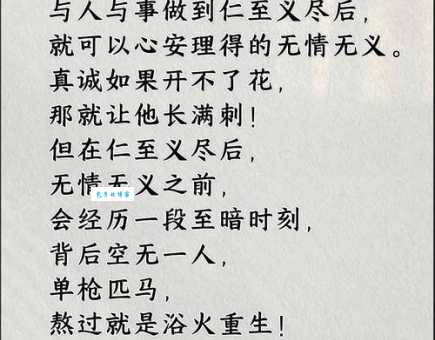 与人与事做到仁至义尽后，
就可以心安理得的无情无义。
真诚如果开不了花，
那就让他长满刺！
但在仁至义尽后，
无情无义之前，
会经历一段至暗时刻，
背后空无一人，
单枪匹马，
熬过就是浴火重生！